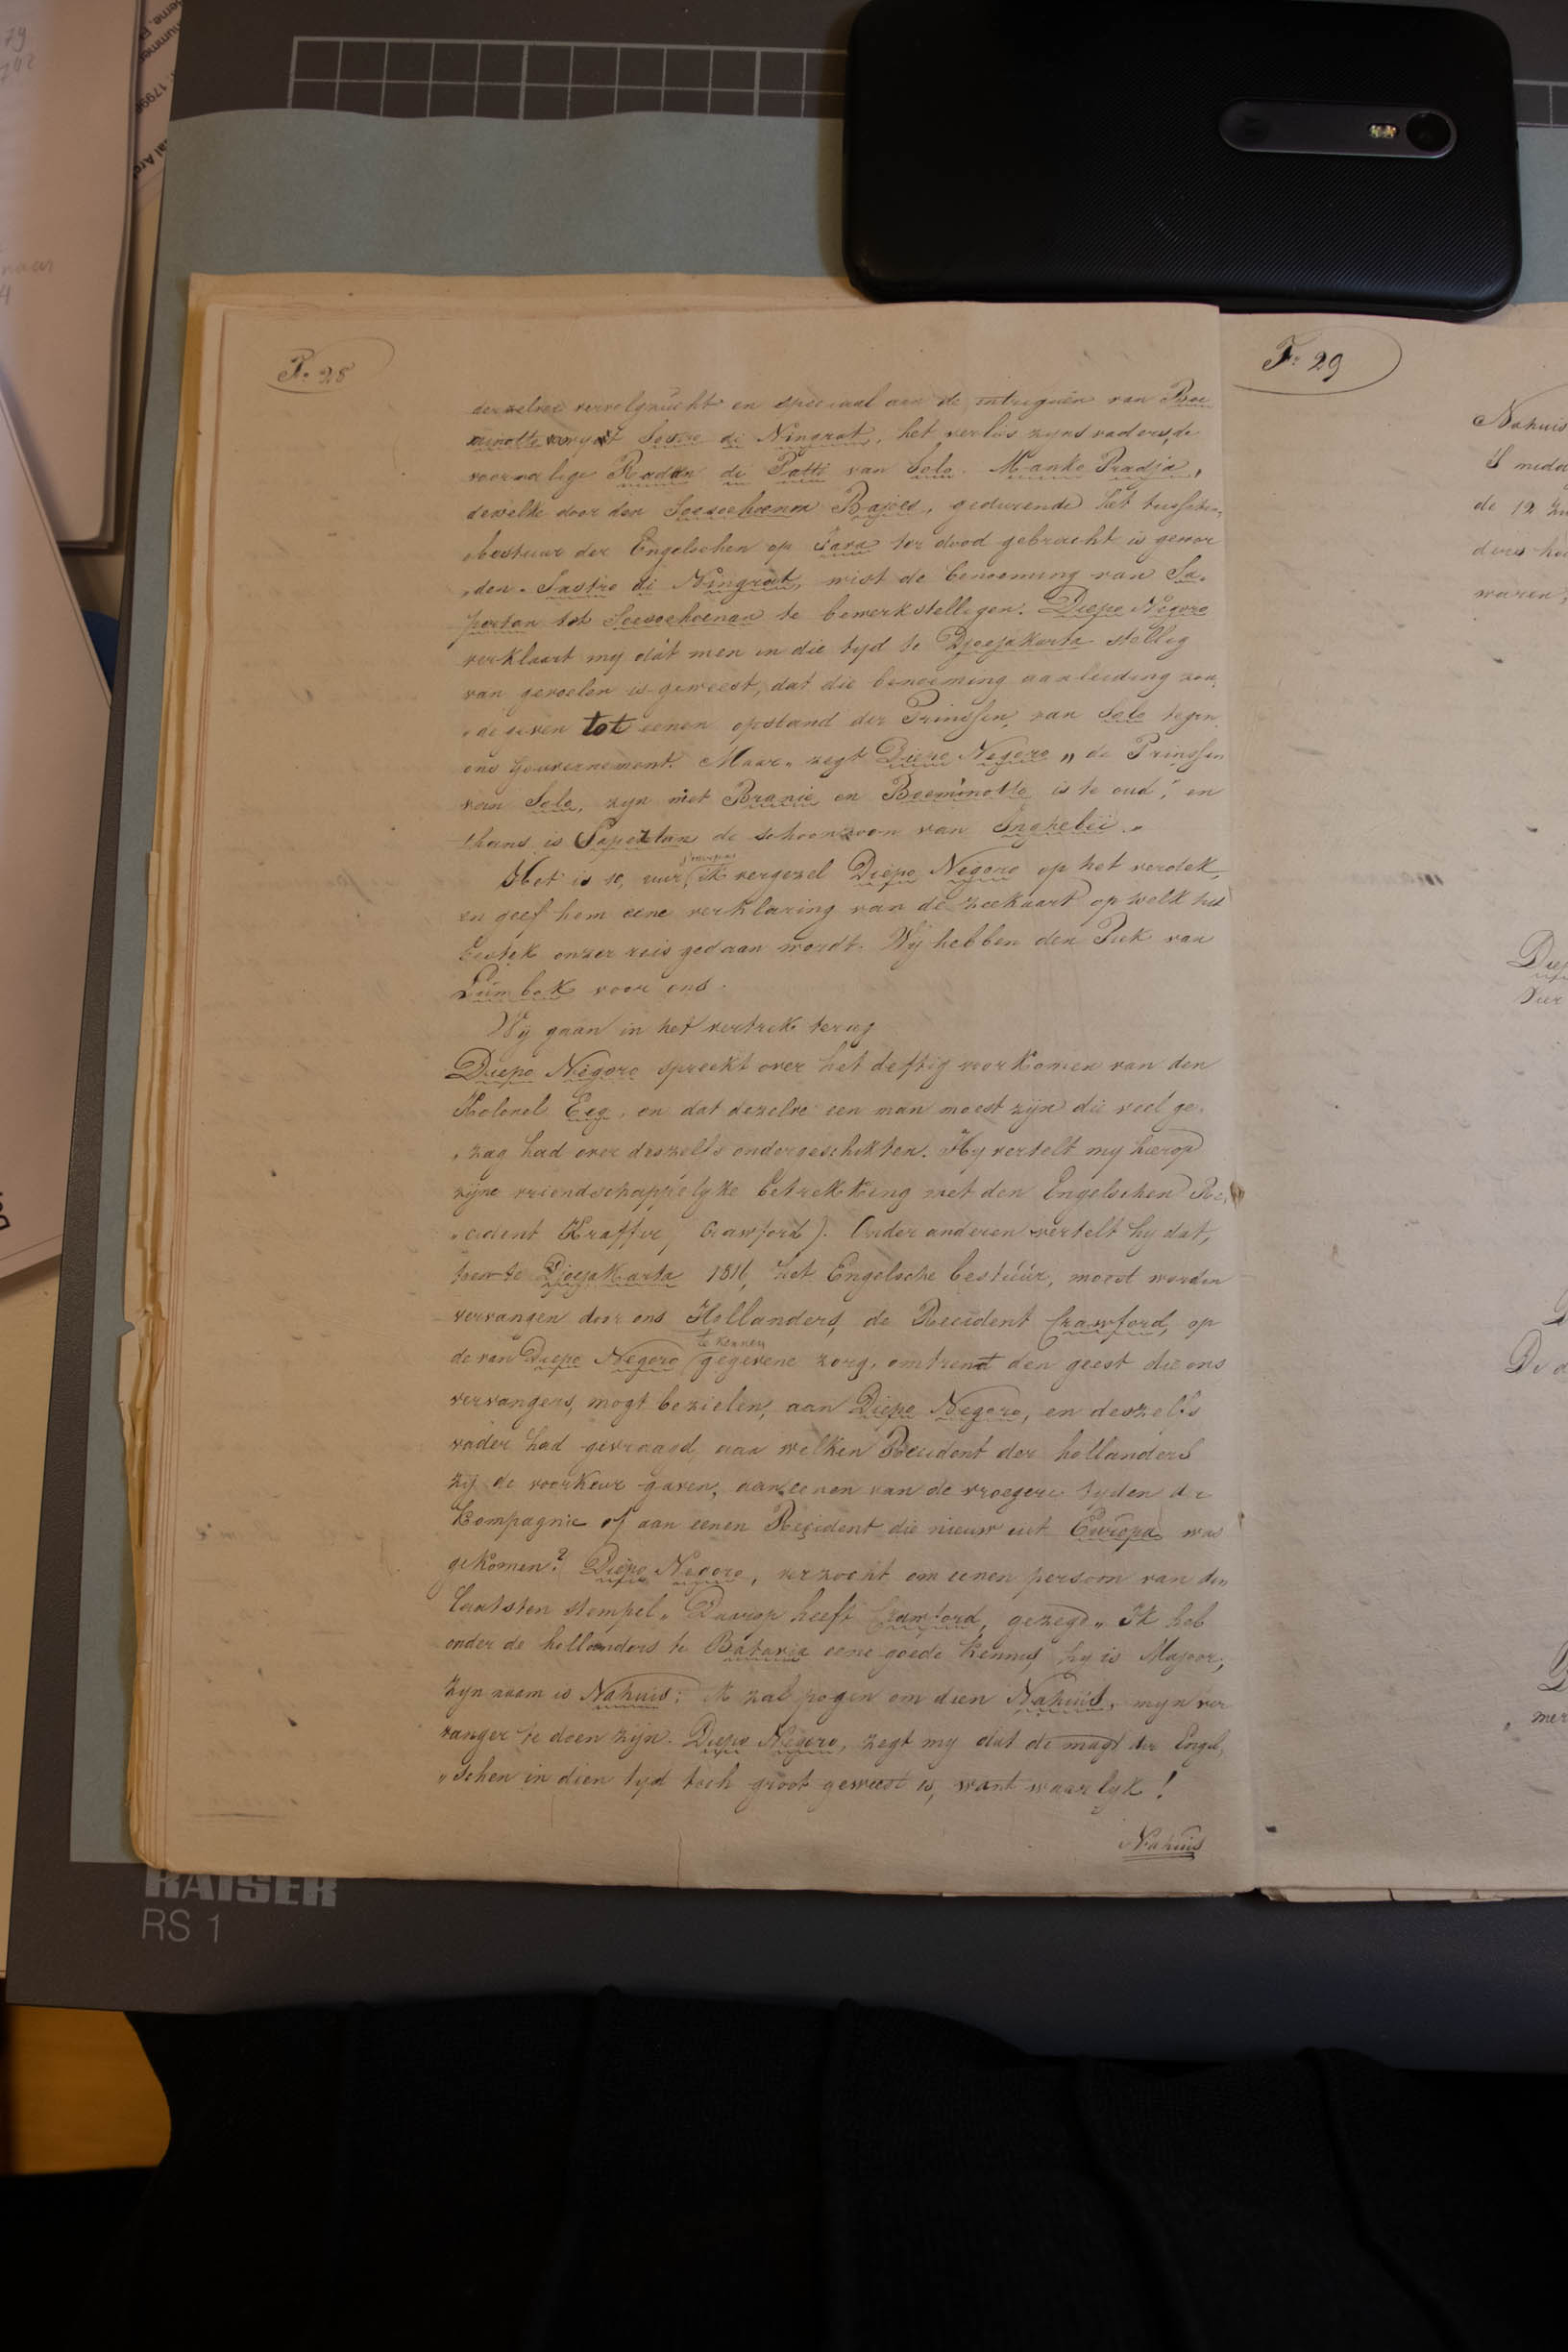 F. 28
derzelve vervolgzucht en speciaal aan de intriguën van Boe
minotto wyst Sostro di Ningrat, het verlies zyns vaders, de
voormalige Radan di Patti van Solo. Manko Pradja,
dewelke door den Soesoehoenan Bajoes, gedurende het tusschen
bestuur der Engelschen op Java ter dood gebracht is gewor
den. Sastro di Ningrat, wist de benoeming van Sa.
portan tot Soesoehoenan te bewerkstelligen. Diepo Negoro
verklaart my dat men in die tyd te Djocjakarta stellig
van gevoelen is geweest, dat die benoeming aanleiding zou
de geven tot eenen opstand der Prinssen van Solo tegen
ons Gouvernement. Maar„ zegt Diepo Negoro „ de Prinssen
van Solo, zyn niet Branie en Boeminotto is te oud, en
thans is Sapoztan de schoonzoon van Inghebeï„
Het is 10, uur, ik vergezel Diepo Negoro op het verdek,
en geef hem eene verklaring van de zeekaart op welk het
bestek onzer reis gedaan wordt. Wij hebben den Piek van
Lombok voor ons.
Wij gaan in het vertrek terug
Diepo Negoro spreekt over het deftig voorkomen van den
Kolonel Eeg, en dat dezelve een man moest zijn die veel ge„
„zag had over deszelfs ondergeschikten. Hy vertelt my hierop
zijne vriendschappelyke betrekking met den Engelschen Re„
„cident Kraffer, Crawford). Onder anderen vertelt hy dat,
toen te Djocjakarta 1816, het Engelsche bestúúr, moest worden
vervangen door ons Hollanders, de Recident Crawford, op
te kennen
de van Diepo Negoro gegevene zorg, omtrent den geest die ons
vervangers, mogt bezielen, aan Diepo Negoro, en deszelfs
vader had gevraagd, aan welken Recident der hollanders
zij de voorkeur gaven, aan eenen van de vroegere tyden der
Kompagnie of aan eenen Recident die nieuw uit Europa was
gekomen? Diepo Negoro, verzocht om eenen persoon van den
laatsten stempel. Daarop heeft Crawford, gezegd „ Ik heb
onder de hollanders te Batavia eene goede kennis, hy is Majoor,
Zyn naam is Nahuis; ik zal pogen om dien Nahuis, myn ver
vanger te doen zijn. Diepo Negoro, zegt my dat de magt der Engel,
„schen in dien tyd toch groot geweest is, want waarlyk!
Nahuis
F. 29
Nahuis
de 12
waren,
Diep
RAISER
RS 1